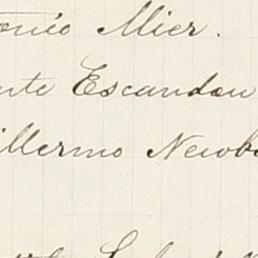 onio Mier.
nte Escandon
illermo Newb